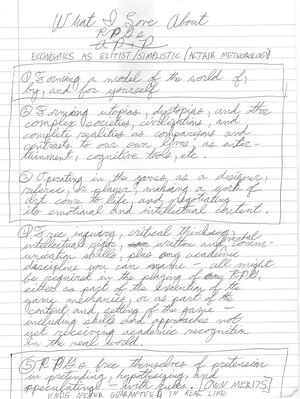 What I Love About
RPGs
ECONOMICS AS ELITIST/SIMPLISTIC (ALTAIR METHODOLOGY)
① Forming a model of the world of,
by, and for yourself
② Forming utopias, dystopias, and other
complex societies, civilizations, and
complete realities as comparisons and
contrasts to our own lives, as enter-
tainment, cognitive tools, etc.
③ Operating in the games, as a designer,
referee, or player, making a work of
art come to life, and negotiating
its emotional and intellectual content.
④ Free inquiry, critical thinking, mental
intellectual rigor, written and commu-
nication skills, plus any academic
discipline you can – all might
be required in the playing of RPGs
either as part of the execution of the
game mechanics, or as part of the
content and setting of the game
including skills and approaches not
yet receiving academic recognition
in the real world.
⑤ RPGs free themselves of pretension
in pretending, hypothesizing, and
speculating – with rules. [OWN MERITS]
ENDS NEVER GUARANTEED IN REAL LIFE